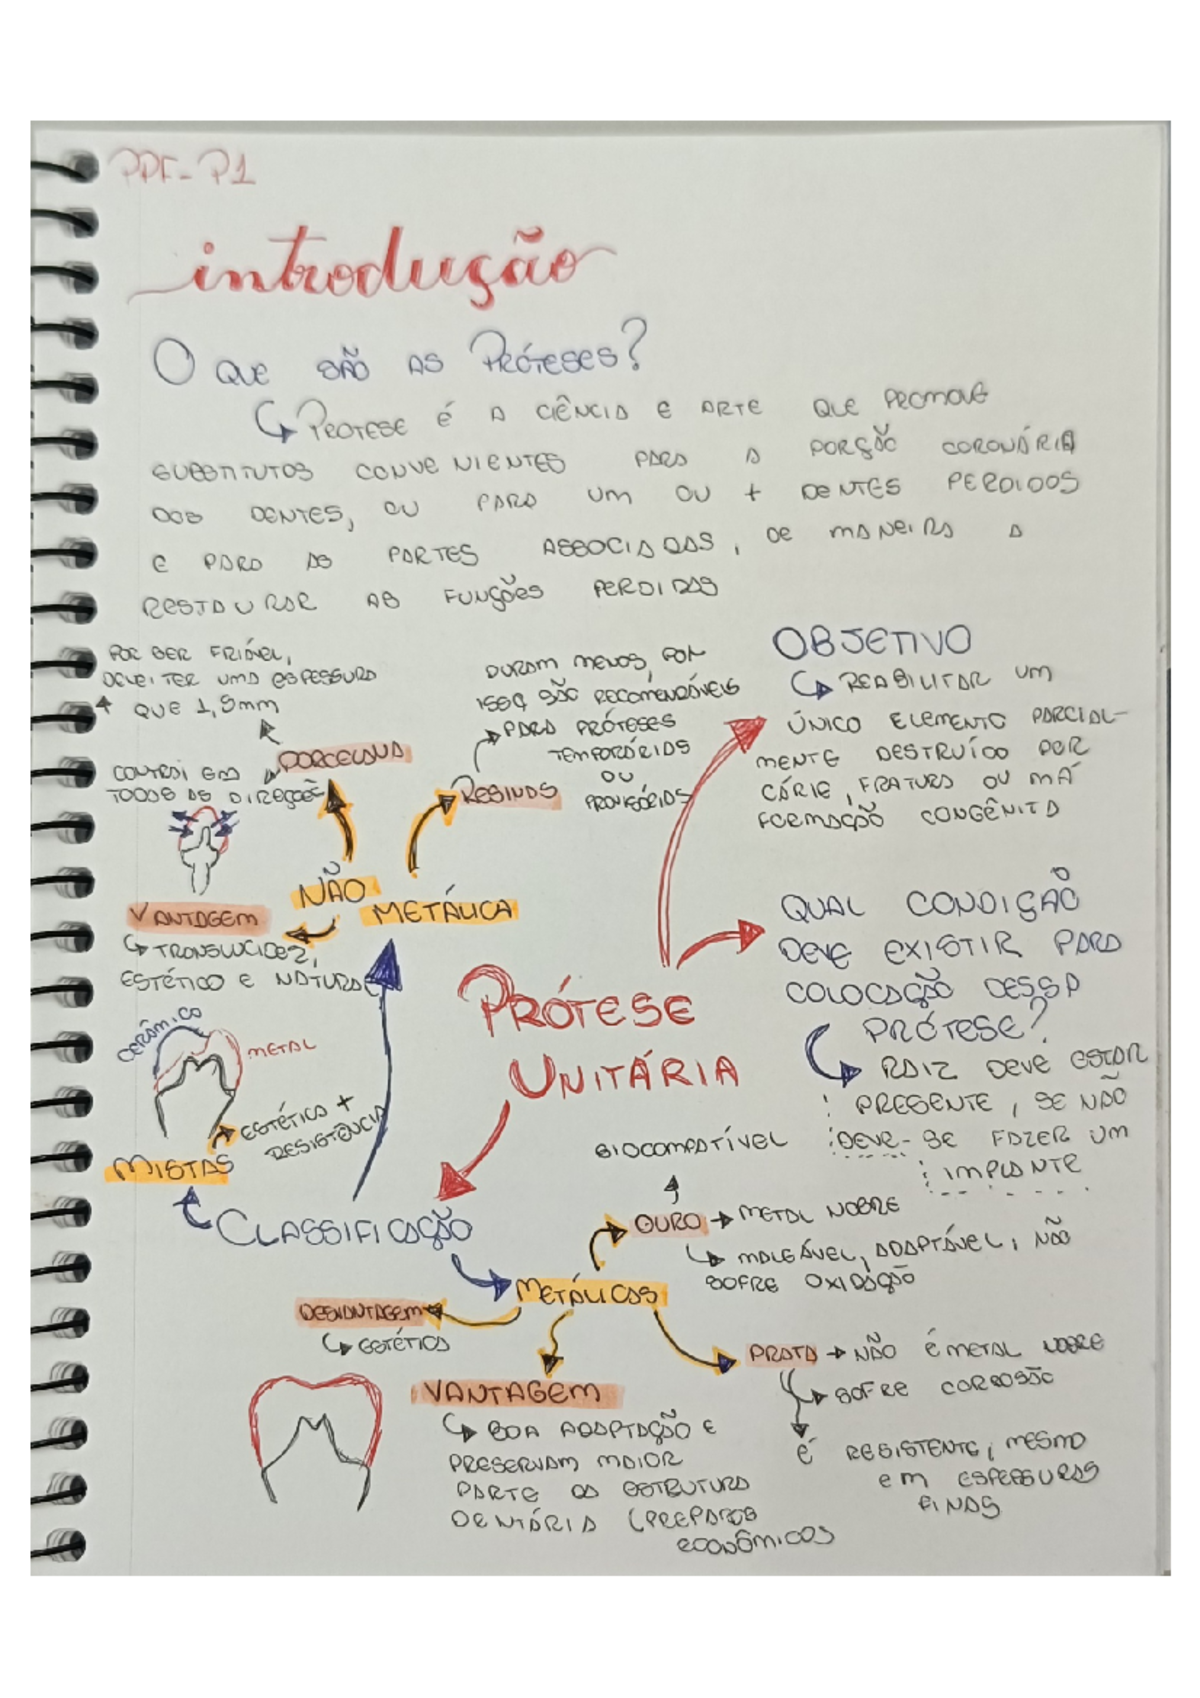 PPF - P1
introdução
O QUE SÃO AS PRÓTESES?
↳ PROTESE É A CIÊNCIA E ARTE QUE PROMOVE
SUBSTITUTOS CONVENIENTES PARA A PORÇÃO CORONÁRIA
DOS DENTES, OU PARA UM OU + DENTES PERDIDOS
E PARA AS PARTES ASSOCIADAS, DE MANEIRA A
RESTAURAR AS FUNÇÕES PERDIDAS
POR SER FRIÁVEL,
DEVE TER UMA ESPESSURA
↑ QUE 1,5mm
PORCELANA
CONTRAI EM
TODAS AS DIREÇÕES
DURAM MENOS, POR
ISSO SÃO RECOMENDÁVEIS
PARA PRÓTESES
TEMPORÁRIAS
OU
PROVISÓRIAS
RESINAS
NÃO
METÁLICA
VANTAGEM
↳ TRANSLUCIDEZ,
ESTÉTICO E NATURAL
OBJETIVO
↳ REABILITAR UM
ÚNICO ELEMENTO PARCIAL-
MENTE DESTRUÍDO POR
CÁRIE, FRATURA OU MÁ
FORMAÇÃO CONGÊNITA
QUAL CONDIÇÃO
DEVE EXISTIR PARA
COLOCAÇÃO DESSA
PRÓTESE?
↳ RAIZ DEVE ESTAR
PRESENTE, SE NÃO
DEVE-SE FAZER UM
IMPLANTE
PRÓTESE
UNITÁRIA
CERÂMICA
METAL
ESTÉTICA +
RESISTÊNCIA
MISTAS
CLASSIFICAÇÃO
METÁLICAS
BIOCOMPATÍVEL
OURO → METAL NOBRE
↳ MALEÁVEL, ADAPTÁVEL, NÃO
SOFRE OXIDAÇÃO
DESVANTAGEM
↳ ESTÉTICA
VANTAGEM
↳ BOA ADAPTAÇÃO E
PRESERVAM MAIOR
PARTE DA ESTRUTURA
DENTÁRIA (PREPAROS
ECONÔMICOS
PRATA → NÃO É METAL NOBRE
↳ SOFRE CORROSÃO
É RESISTENTE, MESMO
EM ESPESSURAS
FINAS